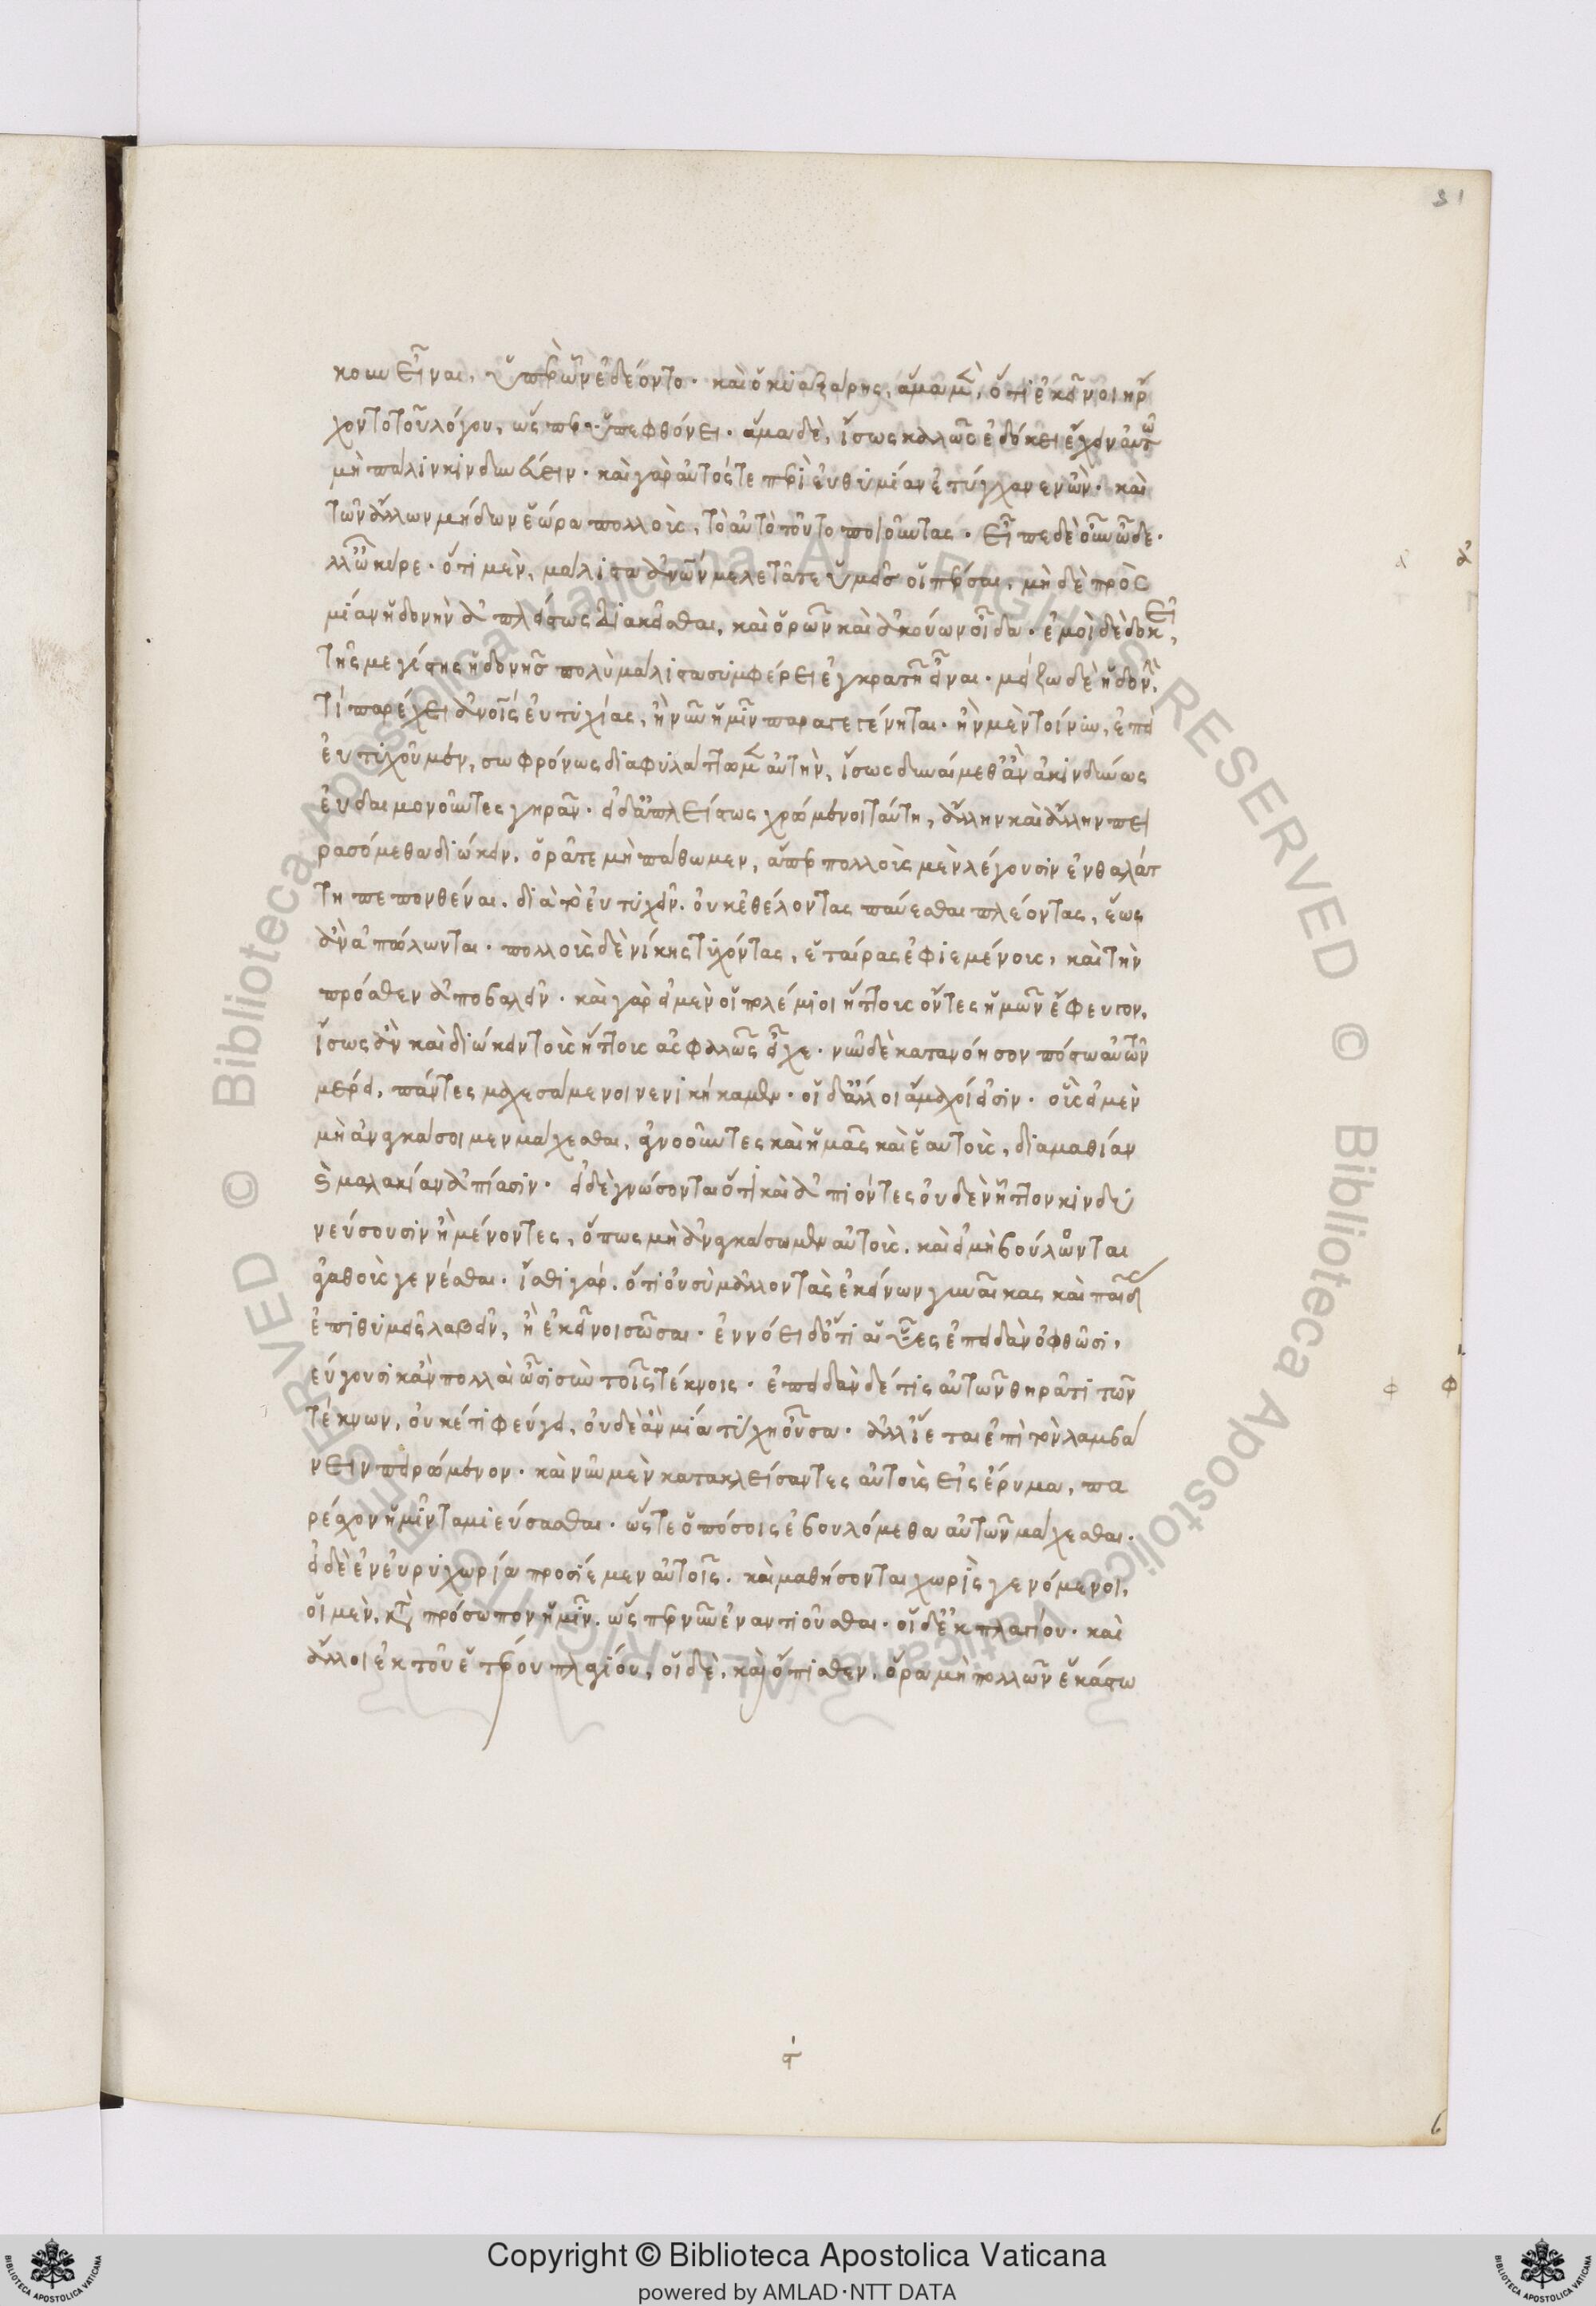 31
κουν εἶναι, ὑπὲρ ὧν ἐδέοντο. καὶ ὁ κυαξάρης, ἅμα μὲν, ὅτι ἐκεῖνοι ἦρ
χον τοῦ λόγου, ὥσπερ ὑπεφθόνει. ἅμα δὲ, ἴσως καλῶς ἐδόκει ἔχον αὐτῶ
μὴ πάλιν κινδυνεύειν. καὶ γὰρ αὐτός τε περὶ εὐθυμίαν ἐτύγχανεν ὢν. καὶ
τῶν ἄλλων μήδων ἑώρα πολλοὺς, τὸ αὐτὸ τοῦτο ποιοῦντας. εἶπε δὲ οὖν ὧδε.
ἀλλ' ὦ κῦρε. ὅτι μὲν, μάλιστα ἀνθρώπων μελετᾶτε ὑμεῖς οἱ πέρσαι, μὴ δὲ πρὸς
μίαν ἡδονὴν ἀπλείστως διακεῖσθαι, καὶ ὁρῶν καὶ ἀκούων οἶδα. ἐμοὶ δὲ δοκεῖ,
τῆς μεγίστης ἡδονῆς πολὺ μάλιστα συμφέρει ἐγκρατῆ εἶναι. μείζω δὲ ἡδονὴν,
τί παρέχει ἀνοις εὐτυχίας, ἢ νῦν ἡμῖν παραγεγένηται. ἢν μὲν τοίνυν, ἐπεὶ
εὐτυχοῦμεν, σωφρόνως διαφυλάττωμεν αὐτὴν, ἴσως δυναίμεθ' ἂν ἀκινδύνως
εὐδαιμονοῦντες γηρᾶν. εἰ δ' ἀπλείστως χρώμενοι ταύτη, ἄλλην καὶ ἄλλην πει
ρασόμεθα διώκειν, ὁρᾶτε μὴ πάθωμεν, ἅπερ πολλοὺς μὲν λέγουσιν ἐν θαλάτ
τη πεπονθέναι. διὰ τὸ εὐτυχεῖν. οὐκ ἐθέλοντας παύεσθαι πλέοντας, ἕως
ἂν ἀπόλωνται. πολλοὺς δὲ νίκης τυχόντας, ἑταίρας ἐφιεμένους, καὶ τὴν
πρόσθεν ἀποβαλεῖν. καὶ γὰρ εἰ μὲν οἱ πολέμιοι ἥττους ὄντες ἡμῶν ἔφευγον,
ἴσως ἂν καὶ διώκειν τοὺς ἥττους ἀσφαλῶς εἶχε. νῦν δὲ κατανόησον πόστω αὐτῶν
μέρει, πάντες μαχεσάμενοι νενικήκαμεν. οἱ δ' ἄλλοι ἄμαχοί εἰσιν. οὓς εἰ μὲν
μὴ ἀναγκάσοιμεν μάχεσθαι, ἀγνοοῦντες καὶ ἡμᾶς καὶ ἑαυτοὺς, δι' ἀμαθίαν
καὶ μαλακίαν ἀπίασιν. εἰ δὲ γνώσονται ὅτι καὶ ἀπιόντες οὐδὲν ἧττον κινδυ
νεύσουσιν ἢ μένοντες, ὅπως μὴ ἀναγκάσωμεν αὐτοὺς, καὶ εἰ μὴ βούλονται
ἀγαθοὺς γενέσθαι. ἴσθι γὰρ, ὅτι οὐ σὺ μᾶλλον τὰς ἐκείνων γυναῖκας καὶ παῖδας
ἐπιθυμεῖς λαβεῖν, ἢ ἐκεῖνοι σῶσαι. ἐννόει δ' ὅτι αἱ ὕες ἐπειδὰν ὀφθῶσι,
εύγουσι κἂν πολλαὶ ὦσι σὺν τοῖς τέκνοις. ἐπειδὰν δέ τις αὐτῶν θηρᾶ τι τῶν
τέκνων, οὐκέτι φεύγει, οὐδὲ ἂν μία τύχη οὖσα. ἀλλ' ἵεται ἐπὶ τὸν λαμβά
νειν πειρώμενον. καὶ νῦν μὲν κατακλείσαντες αὑτοὺς εἰς ἔρυμα, πα
ρέσχον ἡμῖν ταμιεύσασθαι. ὥστε ὁπόσοις ἐβουλόμεθα αὐτῶν μάχεσθαι.
εἰ δὲ ἐν εὐρυχωρία πρόσιμεν αὐτοῖς. καὶ μαθήσονται χωρὶς γενόμενοι,
οἱ μὲν, κατὰ πρόσωπον ἡμῖν. ὥσπερ νῦν ἐναντιοῦσθαι. οἱ δ' ἐκ πλαγίου. καὶ
ἄλλοι ἐκ τοῦ ἑτέρου πλαγίου, οἱ δὲ, καὶ ὄπισθεν, ὅρα μὴ πολλῶν ἑκάστω
6